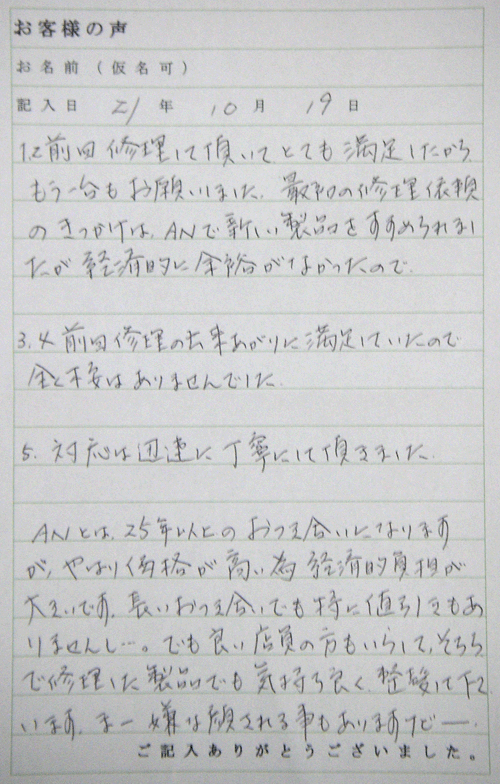 お客様の声
お名前(仮名可)
記入日 21年 10月 19日
1.2 前回修理して頂いてとても満足したから
もう一台もお願いしました。最初の修理依頼
のきっかけは、ANで新しい製品をすすめられまし
たが経済的に余裕がなかったので。
3.4 前回修理の出来あがりに満足していたので
全く不安はありませんでした。
5. 対応は迅速に丁寧にして頂きました。
ANとは、25年以上のおつき合いになります
が、やはり価格が高い為経済的負担が
大きいです。長いおつき合いでも特に値引きもあ
りませんし…。でも良い店員の方もいらして、そちら
で修理した製品でも気持ち良く、整備して下さ
います。まー嫌な顔される事もありますけどー。
ご記入ありがとうございました。